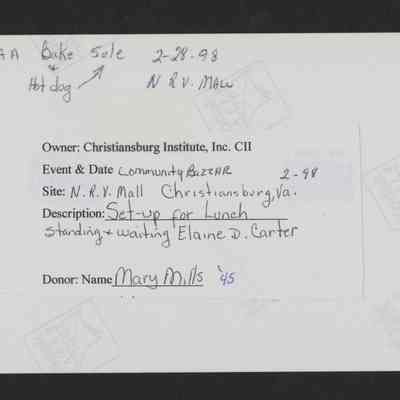 AA Bake Sale 2-28-98
+
Hot dog N.R.V. Mall
Owner: Christiansburg Institute, Inc. CII
Event & Date Community BAZZAR 2-98
Site: N.R.V. Mall Christiansburg, Va.
Description: Set-up for Lunch
Standing + waiting Elaine D. Carter
Donor: Name Mary Mills '45